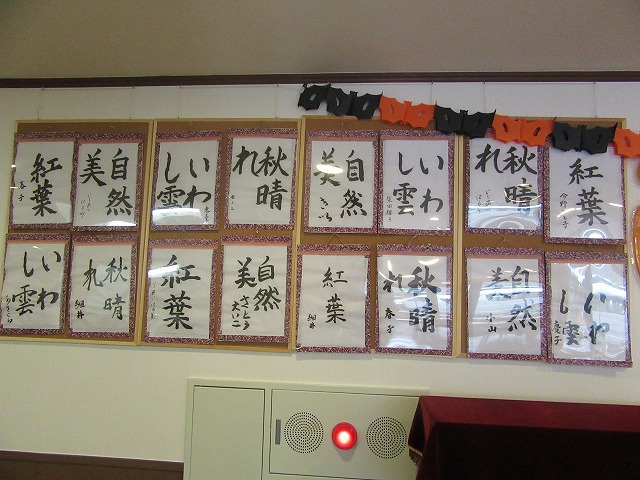 紅葉
春子
自然
美
いわ
し雲
秋晴
れ
自然
美
いわ
し雲
秋晴
れ
紅葉
いわ
し雲
秋晴
れ
細井
紅葉
自然
美
さとう
紅葉
細井
秋晴
れ
春子
自然
美
小山
いわ
し雲